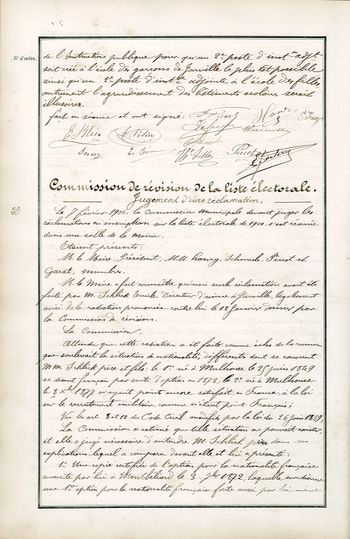 N° d'ordre.
de l'Instruction publique pour qu'un 2e poste d'inst adjt
soit créé à l'école des garçons de Jarville le plus tôt possible
ainsi qu'un 3e poste d'instce adjointe à l'école des filles,
autrement l'agrandissement des bâtiments scolaires serait
illusoire.
fait en séance et ont signé.
Commission de révision de la liste électorale.
Jugement d'une réclamation.
Le 7 février 1900, la Commission Municipale devant juger les
réclamations en inscription sur la liste électorale de 1900 s'est réunie
dans une salle de la Mairie.
Etaient présents:
M le Maire, Président, MM Schwach, et
membres.
M le Maire fait connaître qu'une seule réclamation avait été
faite par M. Emile, Directeur d'usine à Jarville, légalement
avisé de la radiation prononcée contre lui le 12 Janvier dernier par
la Commission de révision.
La Commission
Attendu que cette radiation a été faite comme échos de la rumeur
que soulevait la situation de nationalité, différente dont se couvrent
MM. père et fils: le 1er né à Mulhouse le 25 juin 1849
se disant français par suite d'option en 1872. Le 2e né à Mulhouse
le 1877 n'ayant point encore satisfait, en France, à la loi
sur le recrutement militaire comme n'étant point Français;
Vu les art 8 et 10 du Code Civil modifiés par la loi du 26 juin 1889
La Commission a estimé que telle situation ne pouvait exister
et elle a jugé nécessaire d'entendre M. père dans ses
explications lequel a comparu devant elle et lui a présenté:
1° Une copie certifiée de l'option pour la nationalité française
exercée par lui à Montbéliard le 3 1872, laquelle mentionne
une 1ère option pour la nationalité française faite aussi par lui même